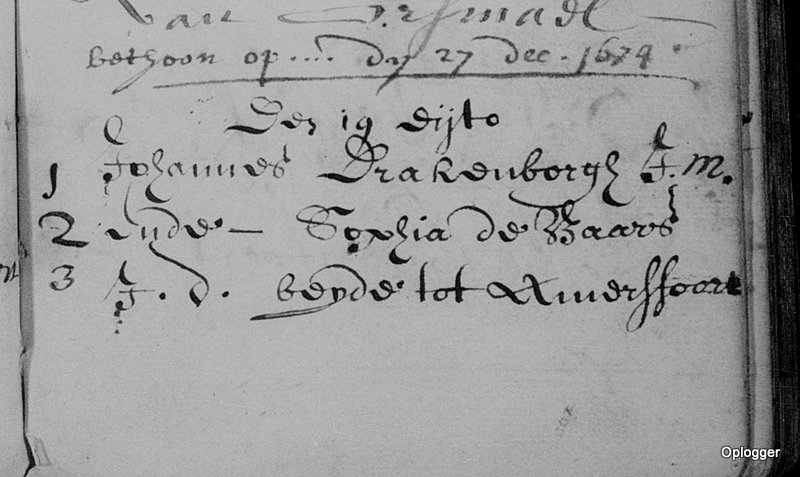 van
bethoon op .... dy 27 dec. 1674
Den 19 dijto
1 Johannes Drakenborgh J. M.
2 ende - Sophia de Baars
3 J. d. beyde tot Amersfoort
Oplogger